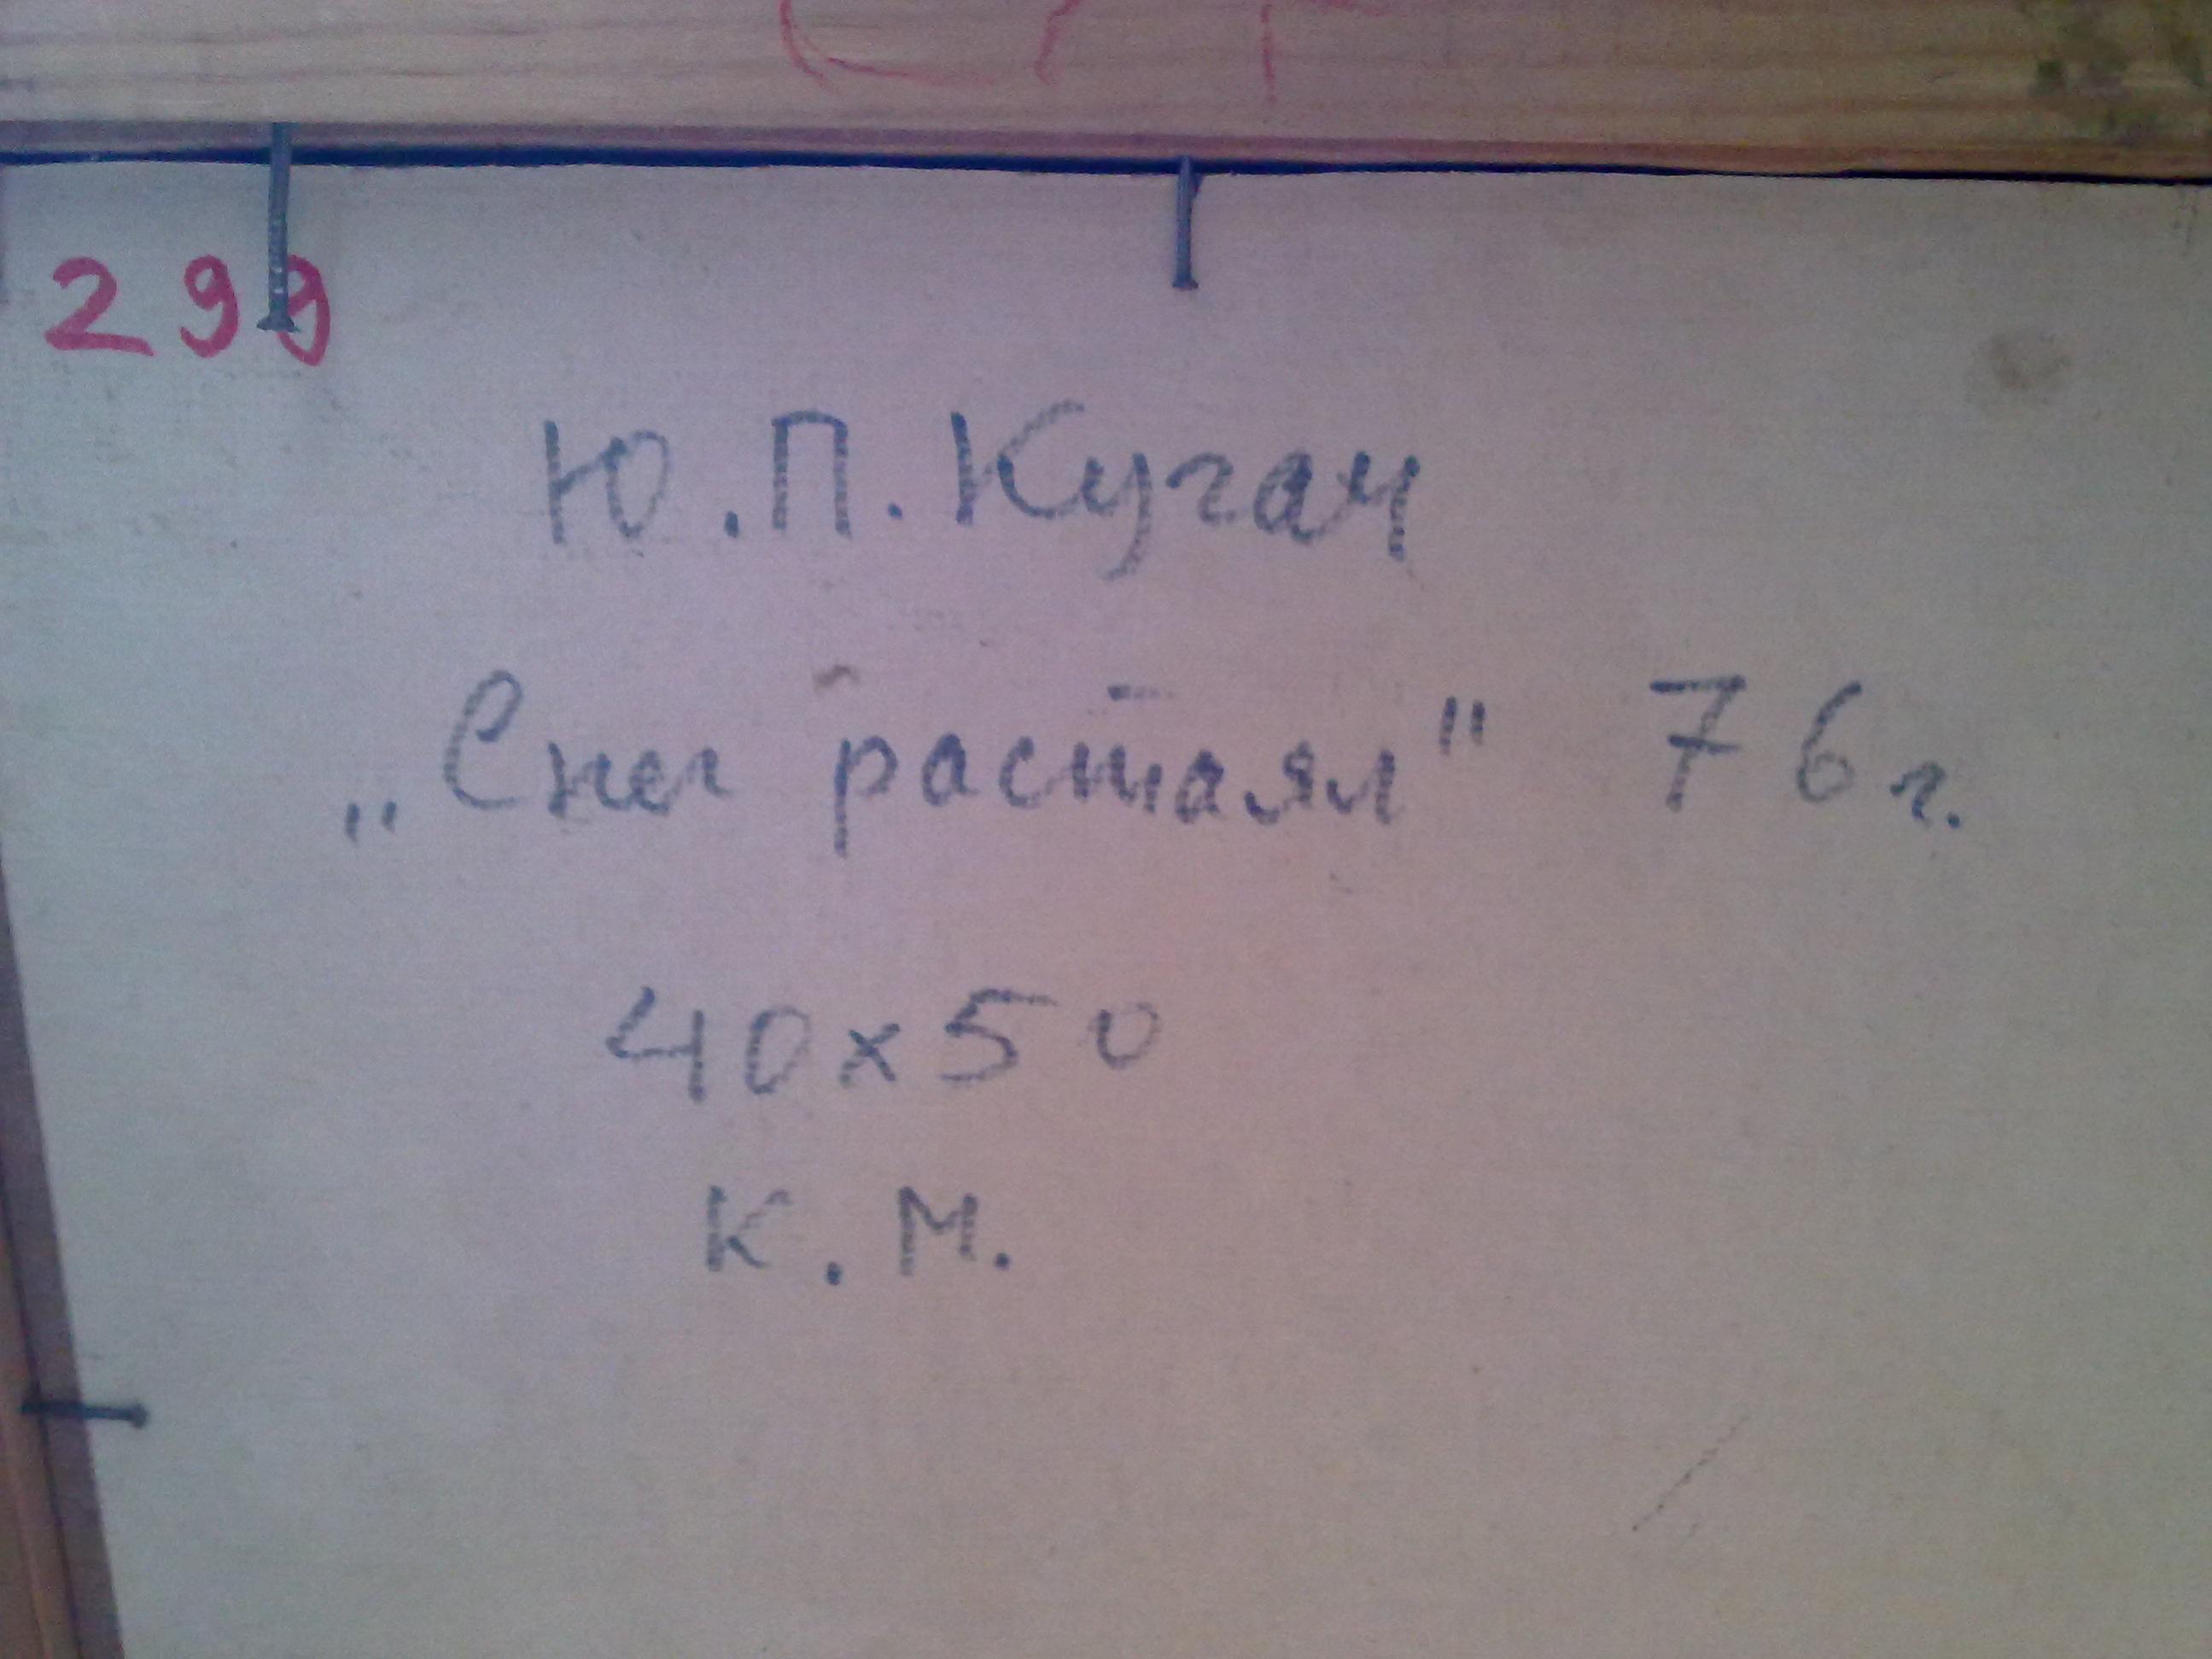 299
Ю.П.Кугач
„Снег растаял" 76 г.
40х50
К.М.